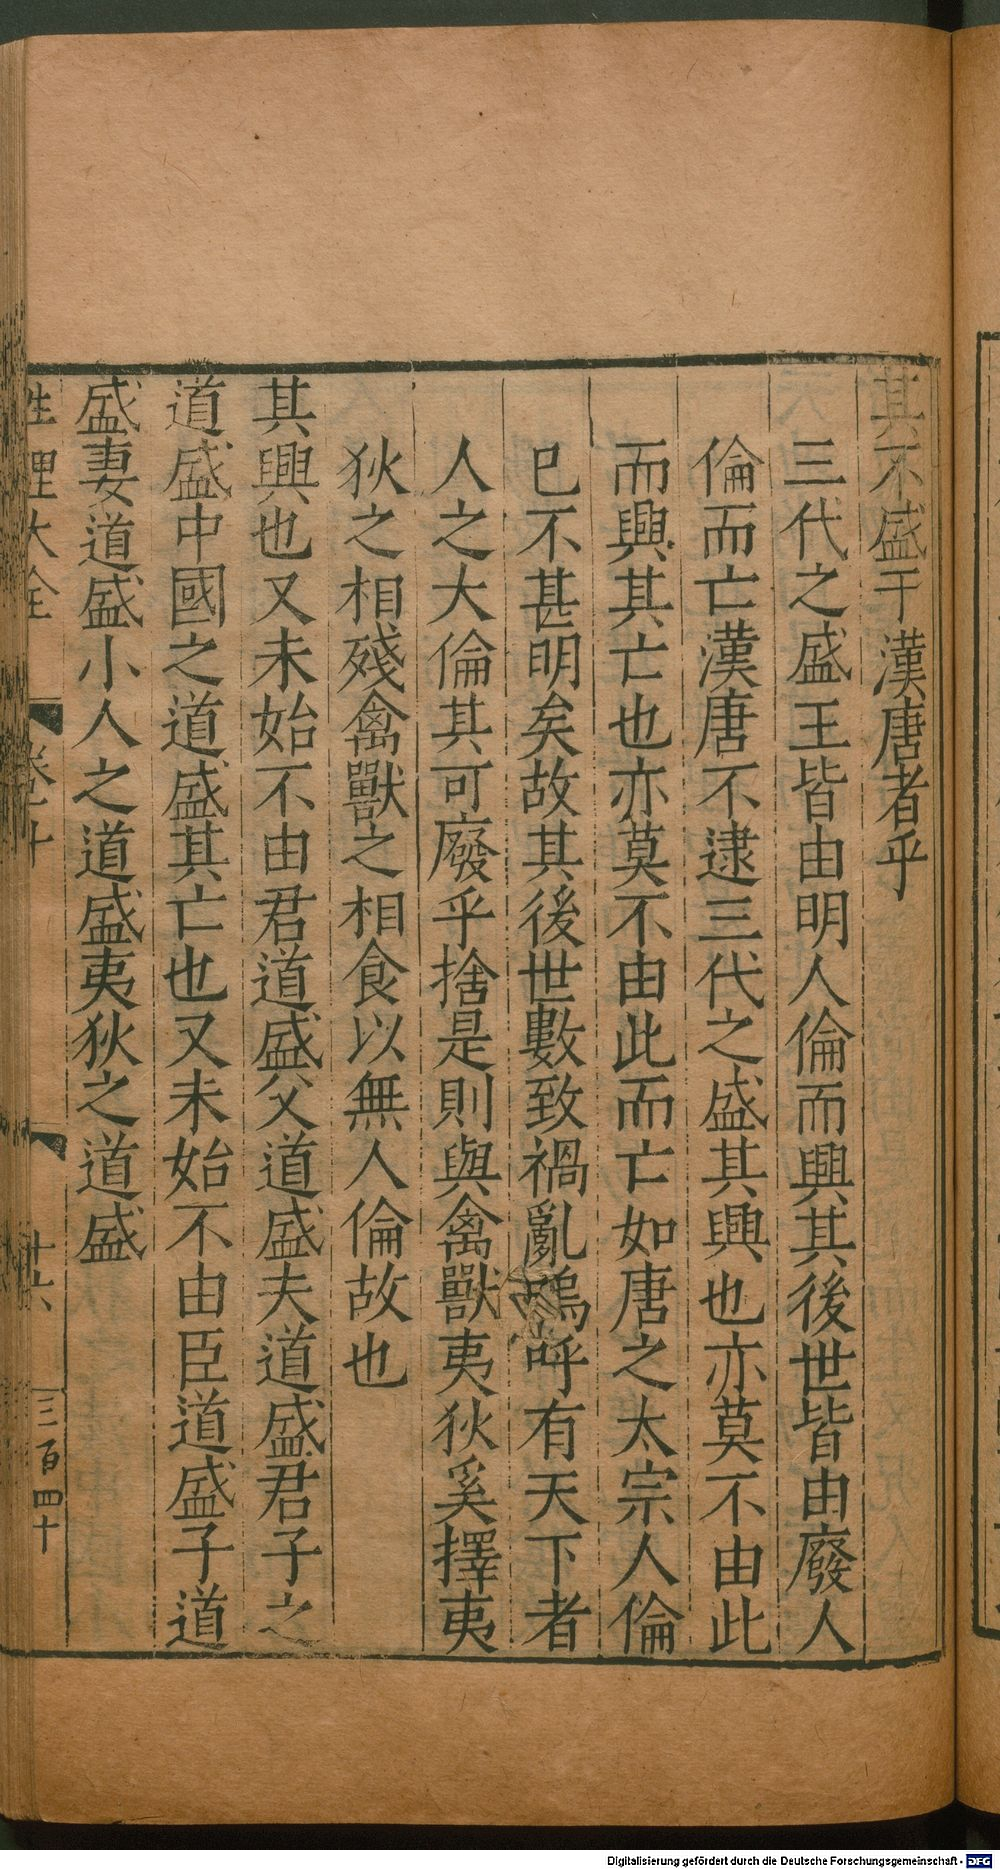 其不盛于漢唐者乎
三代之盛王皆由明人倫而興其後世皆由廢人
倫而亡漢唐不逮三代之盛其興也亦莫不由此
而興其亡也亦莫不由此而亡如唐之太宗人倫
已不甚明矣故其後世數致禍亂嗚呼有天下者
人之大倫其可廢乎捨是則與禽獸夷狄奚擇夷
狄之相殘禽獸之相食以無人倫故也
其興也又未始不由君道盛父道盛夫道盛君子之
道盛中國之道盛其亡也又未始不由臣道盛子道
盛妻道盛小人之道盛夷狄之道盛
性理大全 卷之十 十六 三百四十
Digitalisierung gefördert durch die Deutsche Forschungsgemeinschaft - DFG